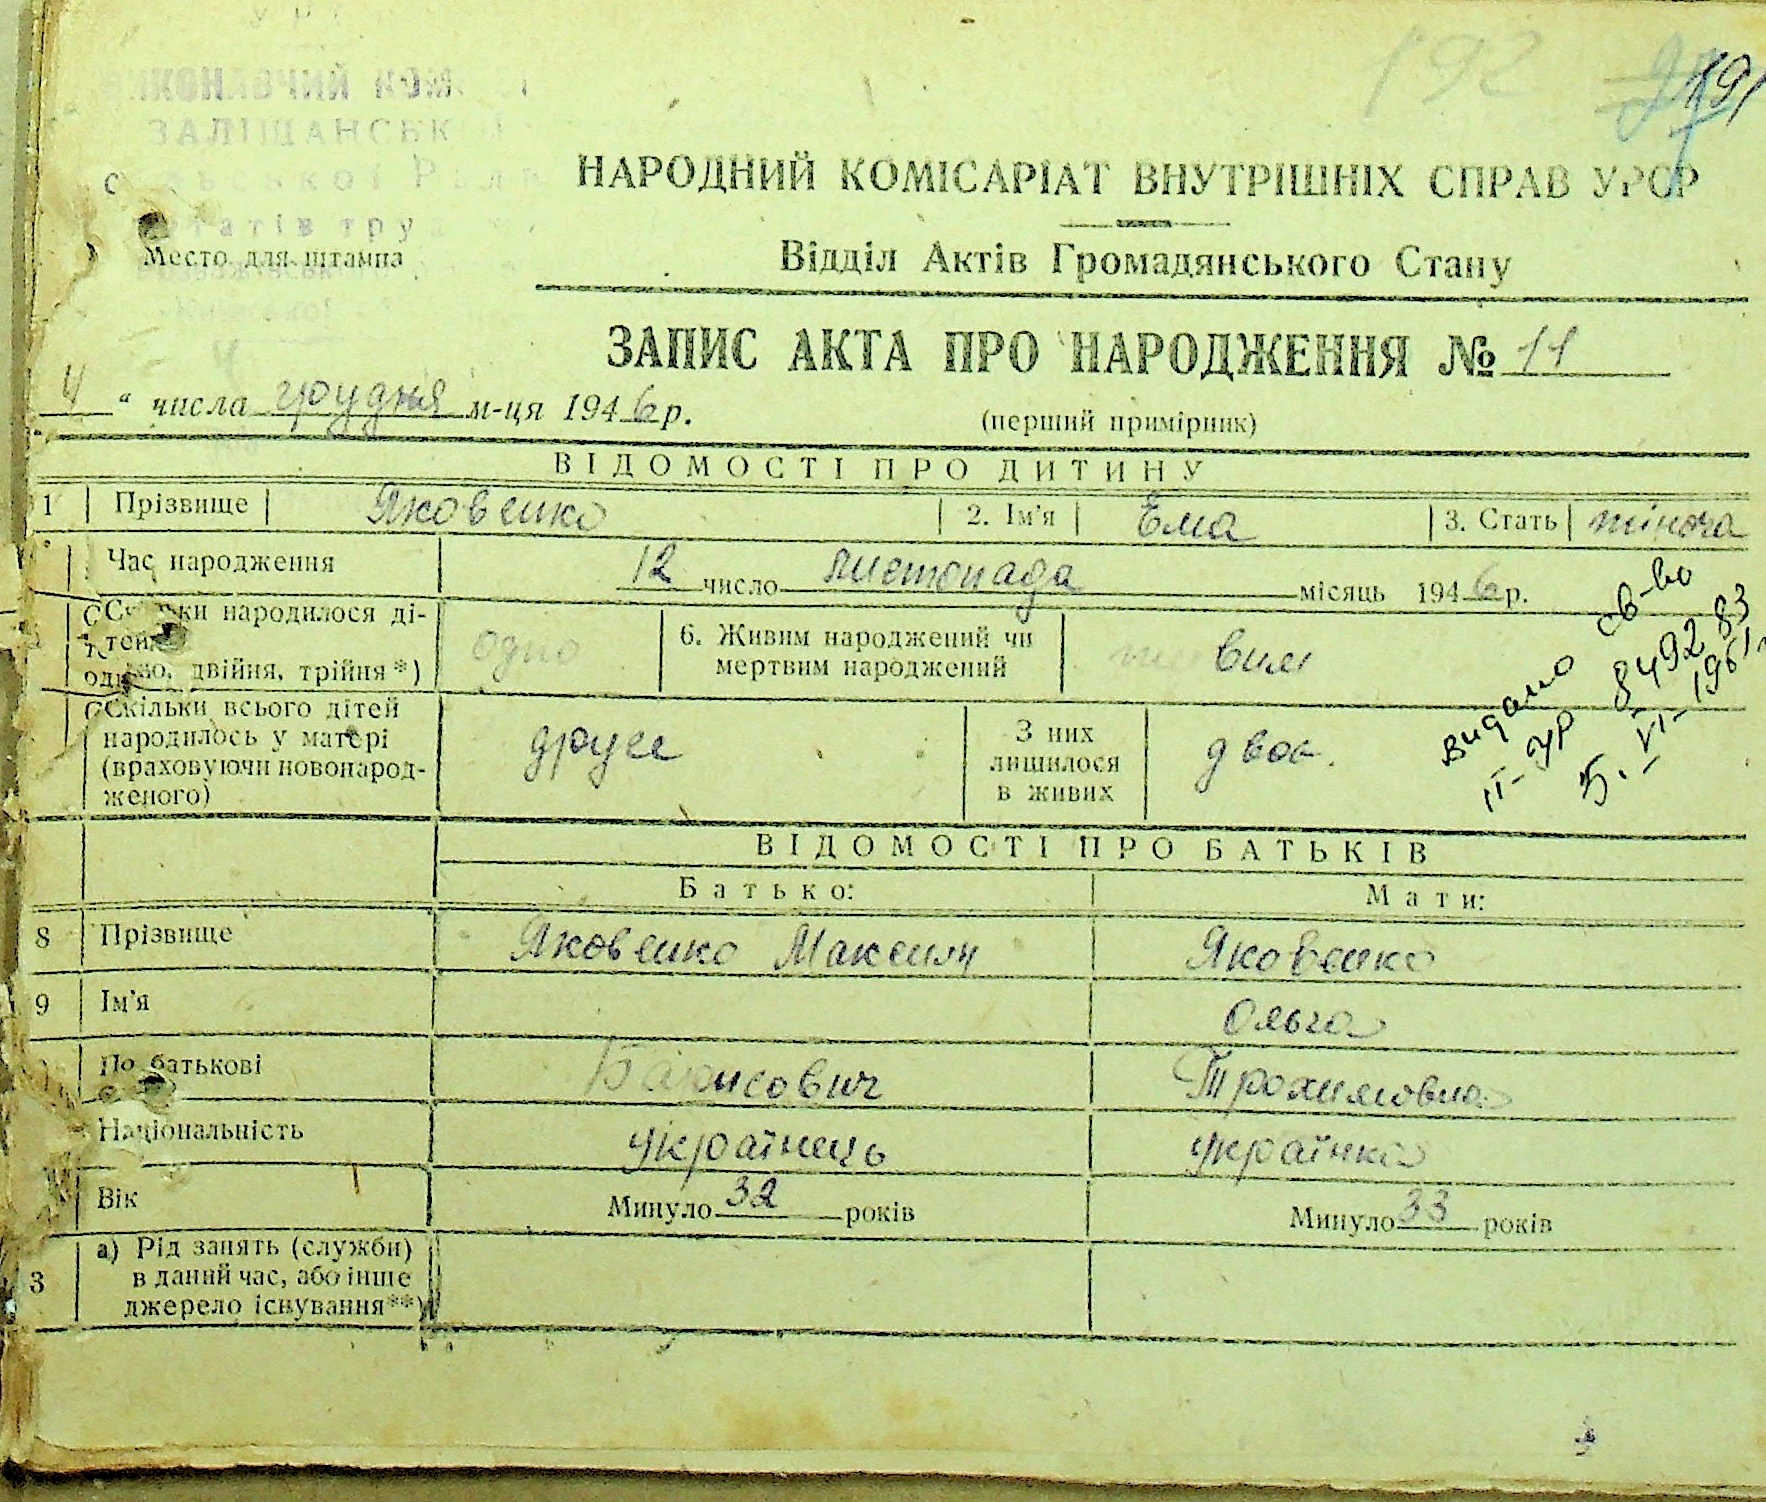 192 191
ВИКОНАВЧИЙ КОМ
ЗАЛІЩАНСЬК
НАРОДНИЙ КОМІСАРІАТ ВНУТРІШНІХ СПРАВ УРСР
Место для штампа
Відділ Актів Громадянського Стану
ЗАПИС АКТА ПРО НАРОДЖЕННЯ № 11
4 " числа грудня м-ця 1946 р.
(перший примірник)
ВІДОМОСТІ ПРО ДИТИНУ
1 Прізвище Яковенко 2. Ім'я Ема 3. Стать жіноча
Час народження 12 число листопада місяць 1946 р.
Скільки народилося ді-
тей
одно, двійня, трійня *) одно 6. Живим народжений чи
мертвим народжений живим
Скільки всього дітей
народилось у матері
(враховуючи новонарод-
женого) друге З них
лишилося
в живих двоє.
видано св-во
II-УР 849283
5.-VI-1961
ВІДОМОСТІ ПРО БАТЬКІВ
Батько: Мати:
8 Прізвище Яковенко Максим Яковенко
9 Ім'я Ольга
По батькові Борисович Трохимовна
Національність українець українка
Вік Минуло 32 років Минуло 33 років
3 а) Рід занять (служби)
в даний час, або інше
джерело існування**)